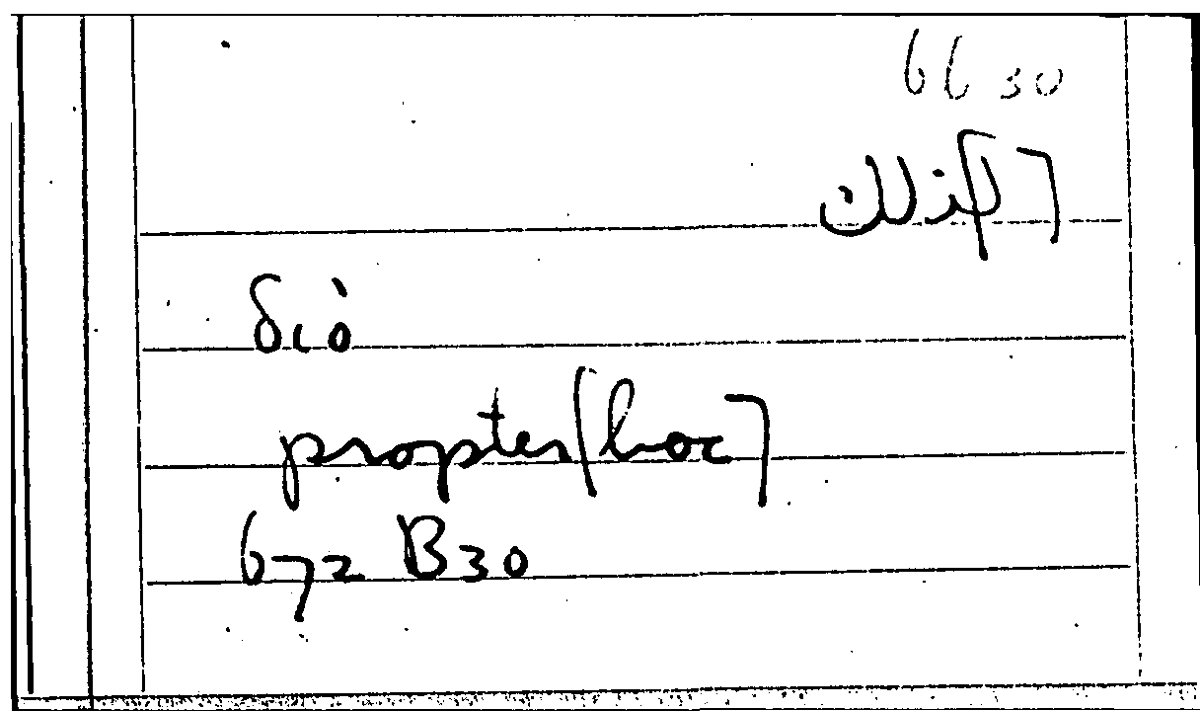 66 30
[لذلك]
διὸ
propter [hoc]
672 B30